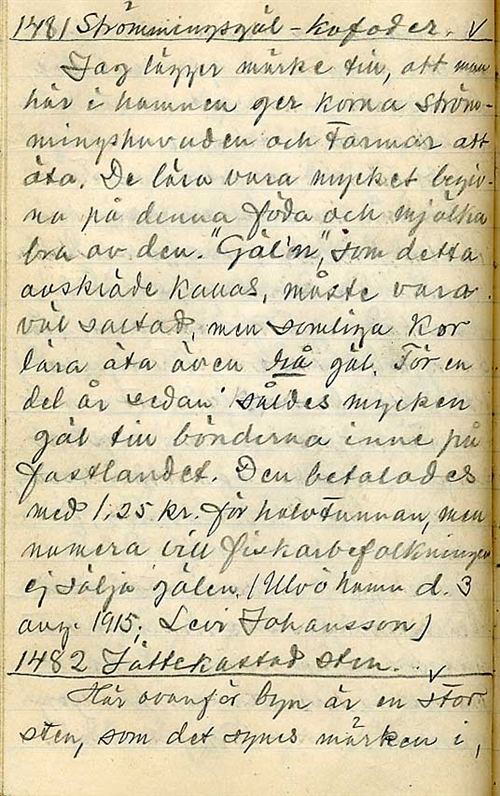 1481 Strömmingsgäl - kofoder. V
Jag lägger märke till, att man
här i hamnen ger korna ström-
mingshuvuden och tarmar att
äta. De lära vara mycket begiv-
na på denna föda och mjölka
bra av den. "Gäl'n", som detta
avskräde kallas, måste vara
väl saltad, men somliga kor
lära äta även rå gäl. För en
del år sedan såldes mycken
gäl till bönderna inne på
fastlandet. Den betalades
med 1,25 kr. för halvtunnan, men
numera vill fiskarbefolkningen
ej sälja gälen. (Ulvö hamn d. 3
aug. 1915; Levi Johansson)
1482 Jättekastad sten. V
Här ovanför byn är en stor
sten, som det synes märken i,